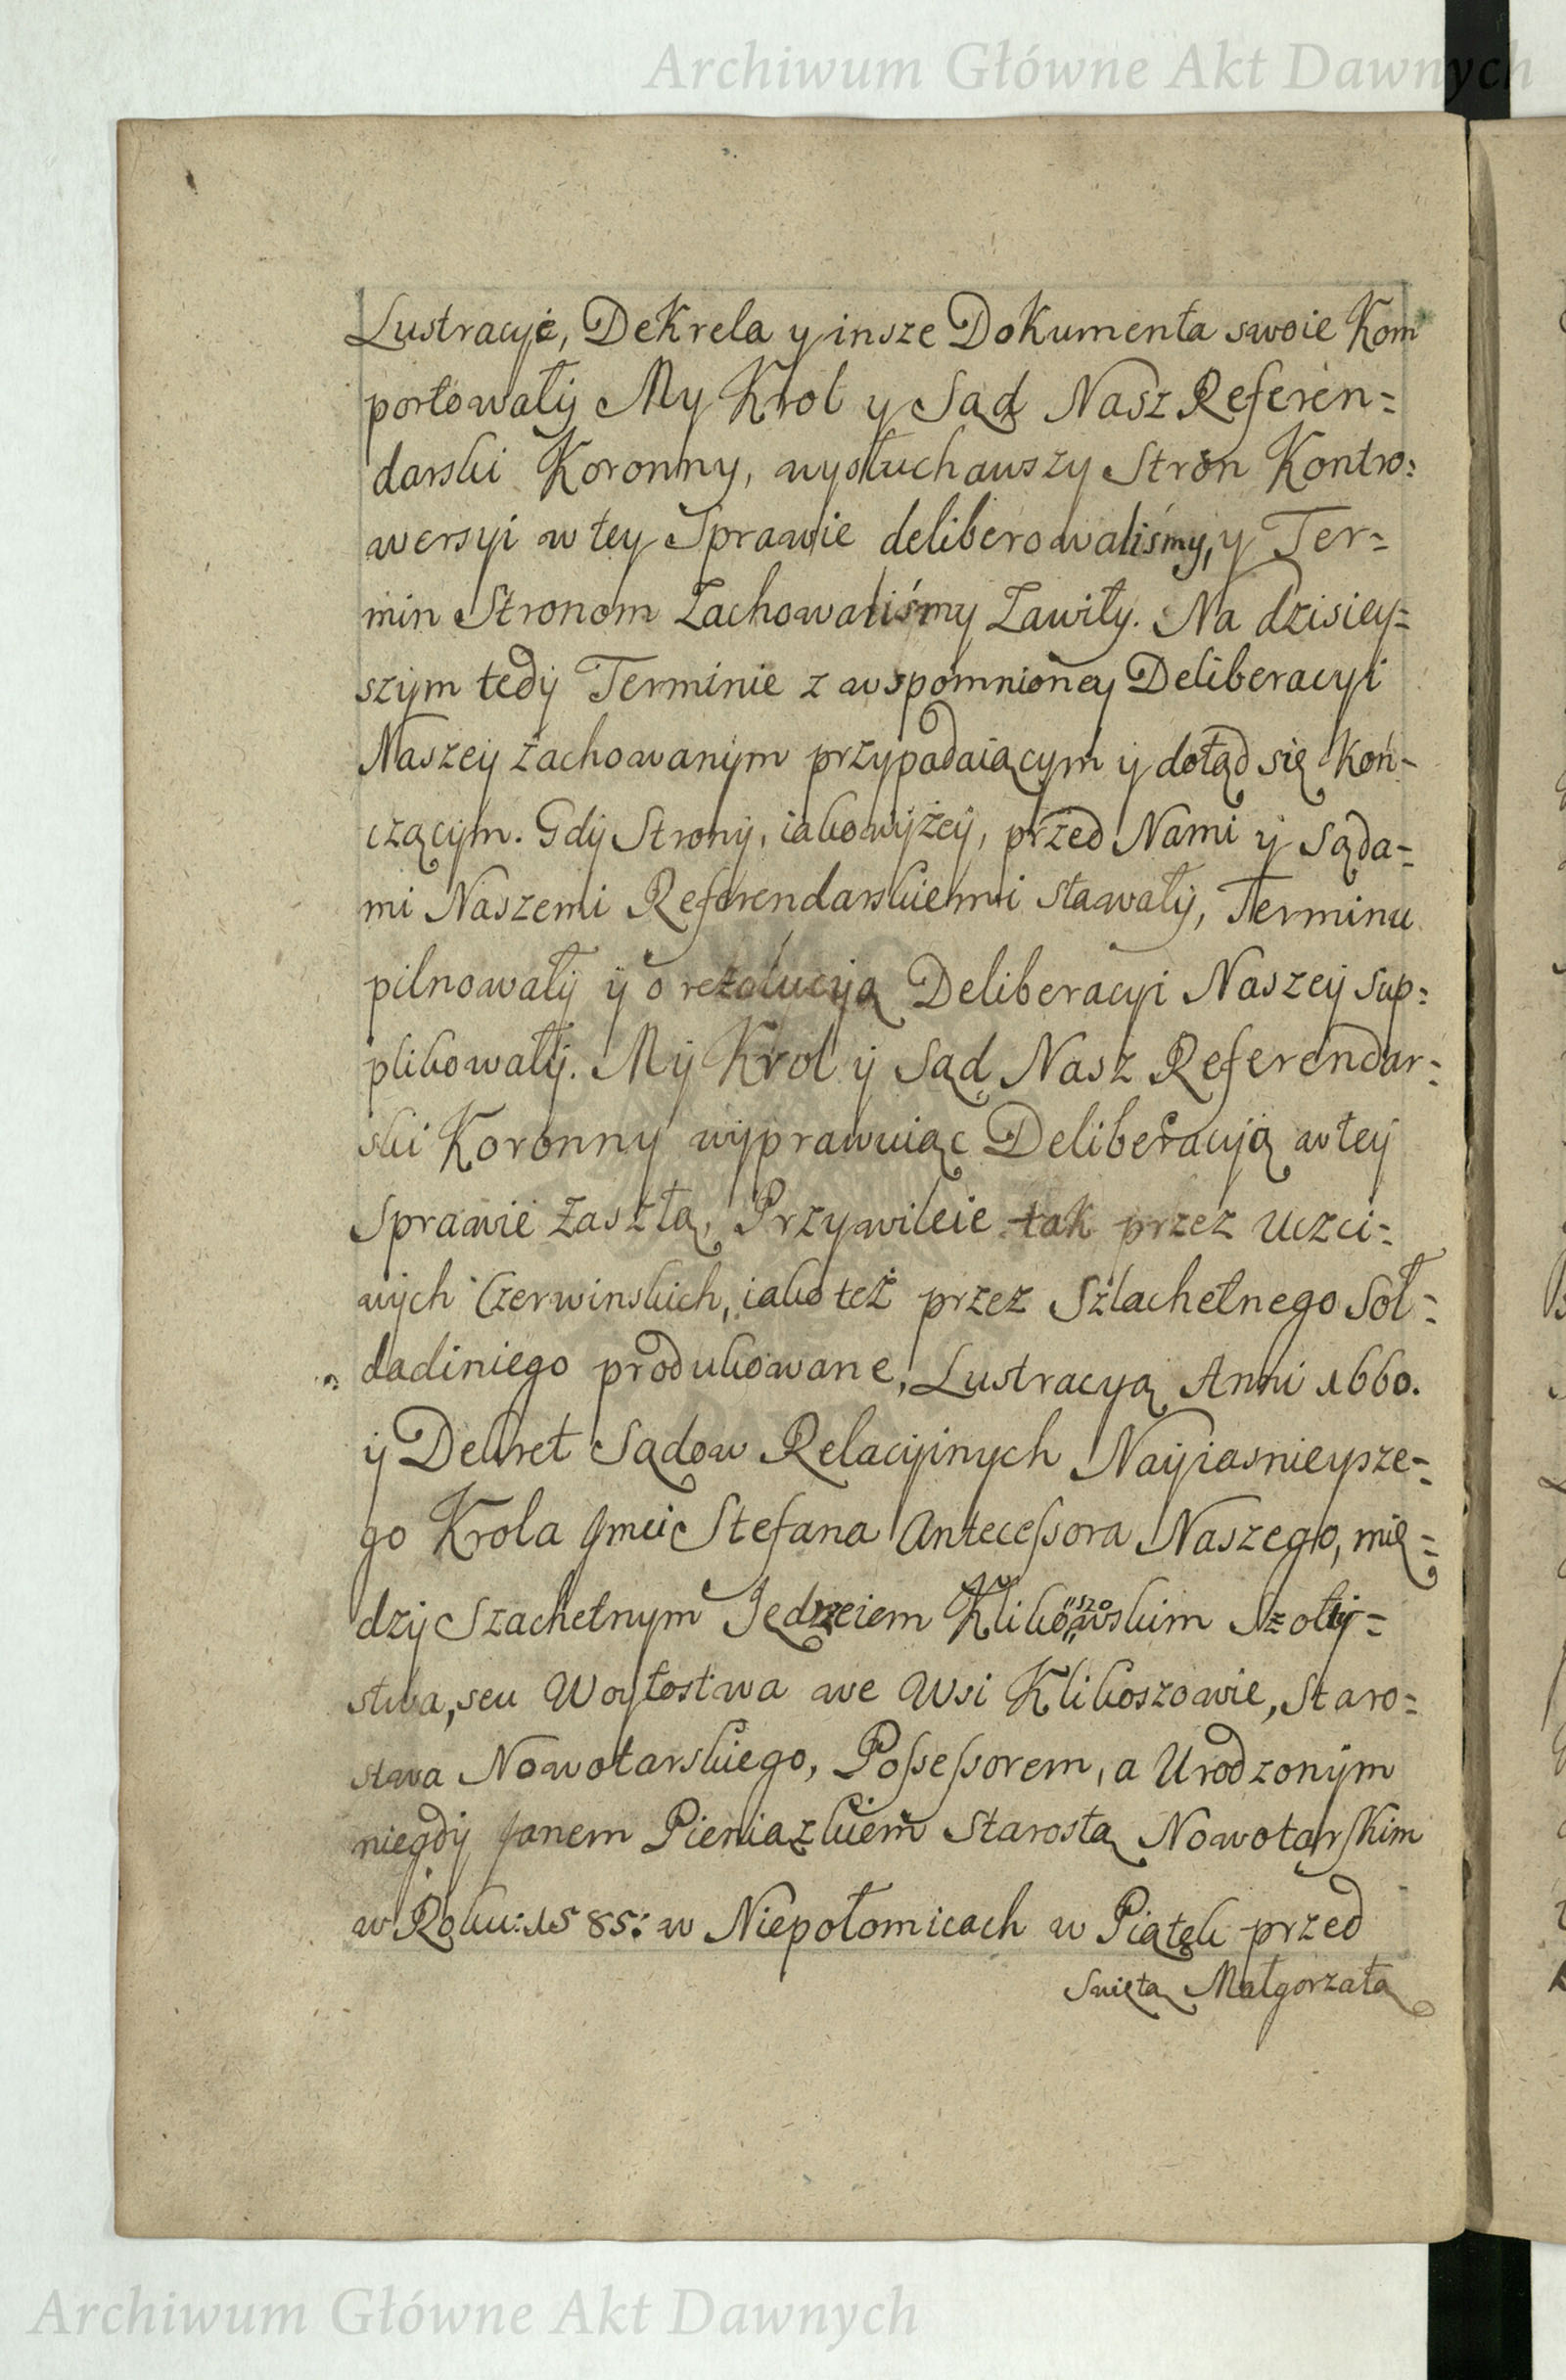 Archiwum Główne Akt Dawnych
Lustracyie, Dekreta y insze Dokumenta swoie Kom
portowały My Krol y Sąd Nasz Referen=
darski Koronny, wysłuchawszy Stron Kontro=
wersyi w tey Sprawie deliberowaliśmy, y Ter=
min Stronom Zachowaliśmy Zawiły. Na dzisiey=
szym tedy Terminie z wspomnioney Deliberacyi
Naszey zachowanym przypadaiącym y dotąd się koń=
czącym. Gdy Strony, iako wyżey, przed Nami y Sąda=
mi Naszemi Referendarskiemi stawały, Terminu
pilnowały y o rezolucyą Deliberacyi Naszey sup=
plikowały. My Krol y Sąd Nasz Referendar=
ski Koronny wyprawuiąc Deliberacyią w tey
Sprawie Zaszłą, Przywileie tak przez Uczci=
wych Czerwinskich, iako też przez Szlachetnego Soł=
dadiniego produkowane, Lustracyą Anni 1660.
y Dekret Sądow Relacyinych Nayiasnieysze=
go Krola Jmci Stefana Antecessora Naszego, mię=
dzy Szachetnym Jędrzeiem Klikoszowskim Szołty=
stwa, seu Woytostwa we Wsi Klikoszowie, Staro=
stwa Nowotarskiego, Possessorem, a Urodzonym
niegdy Janem Pieniązkiem Starostą Nowotarskim
w Roku: 1585: w Niepołomicach w Piątek przed
Swiętą Małgorzatą
Archiwum Główne Akt Dawnych